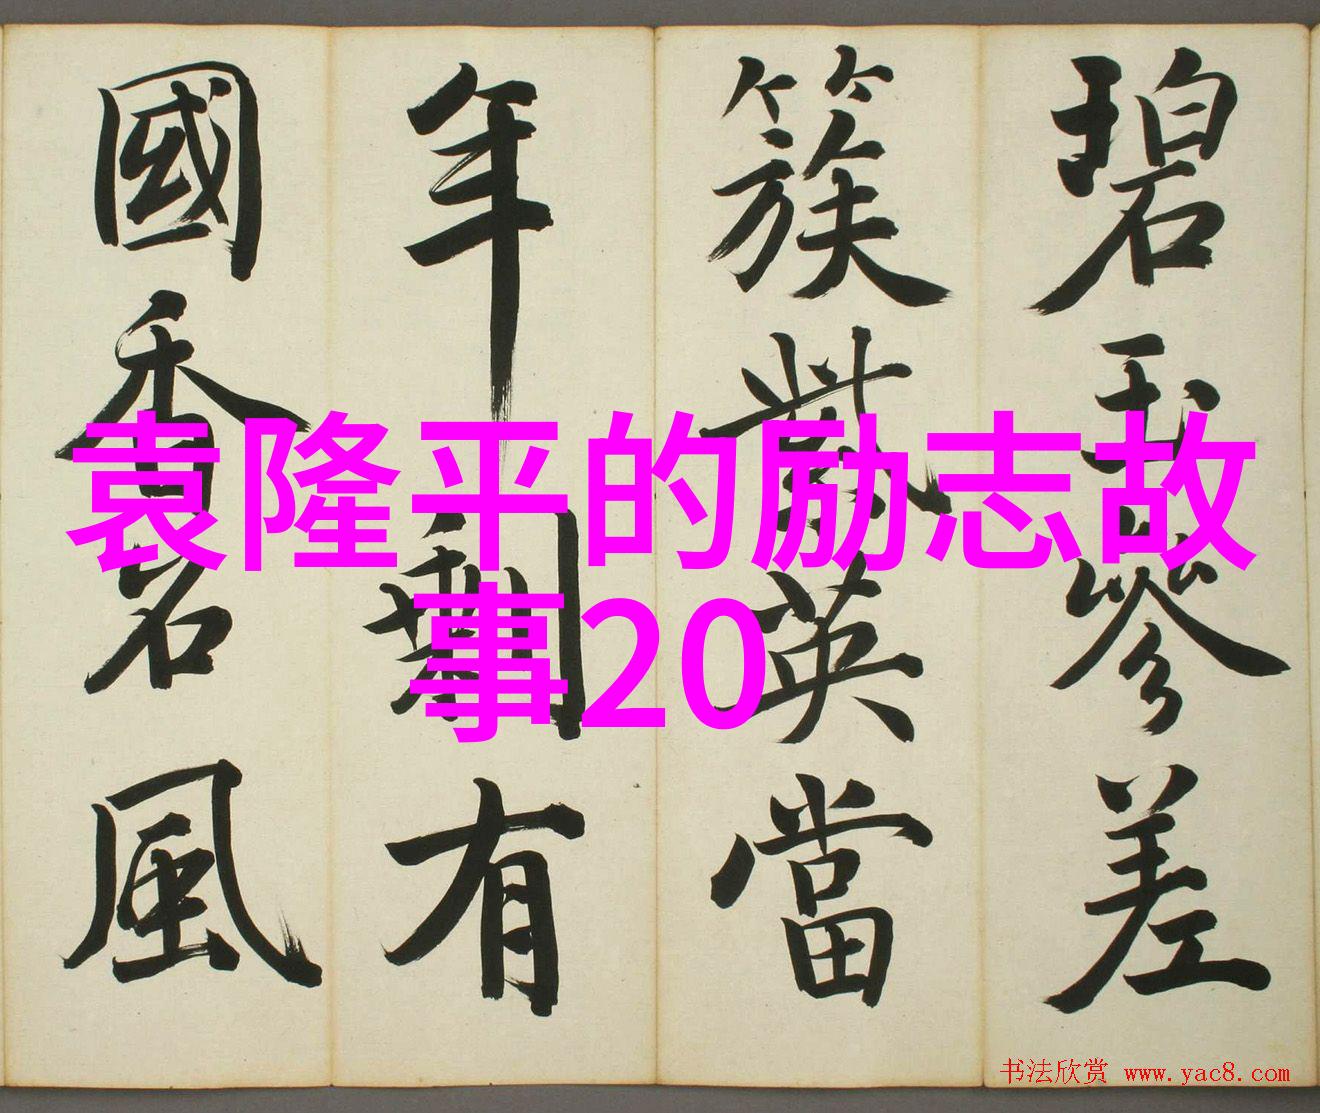 袁隆平的励志故
事20
碧玉參差
簇紫英當
年剩有
國香名風
书法欣赏 www.yac8.com